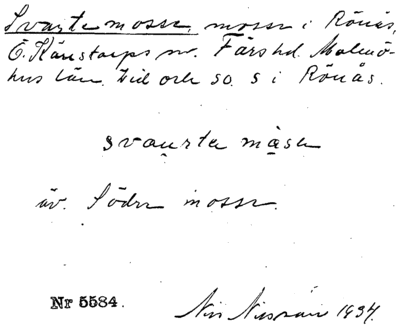 Svarte mosse, mosse i Rönås,
Ö. Kärstorps sn. Färs hd. Malmö-
hus län. Vid och so. s i Rönås.
svau̯rta måsa
äv. Södra mosse.
Nr 5584. Nils Nilsson 1934.